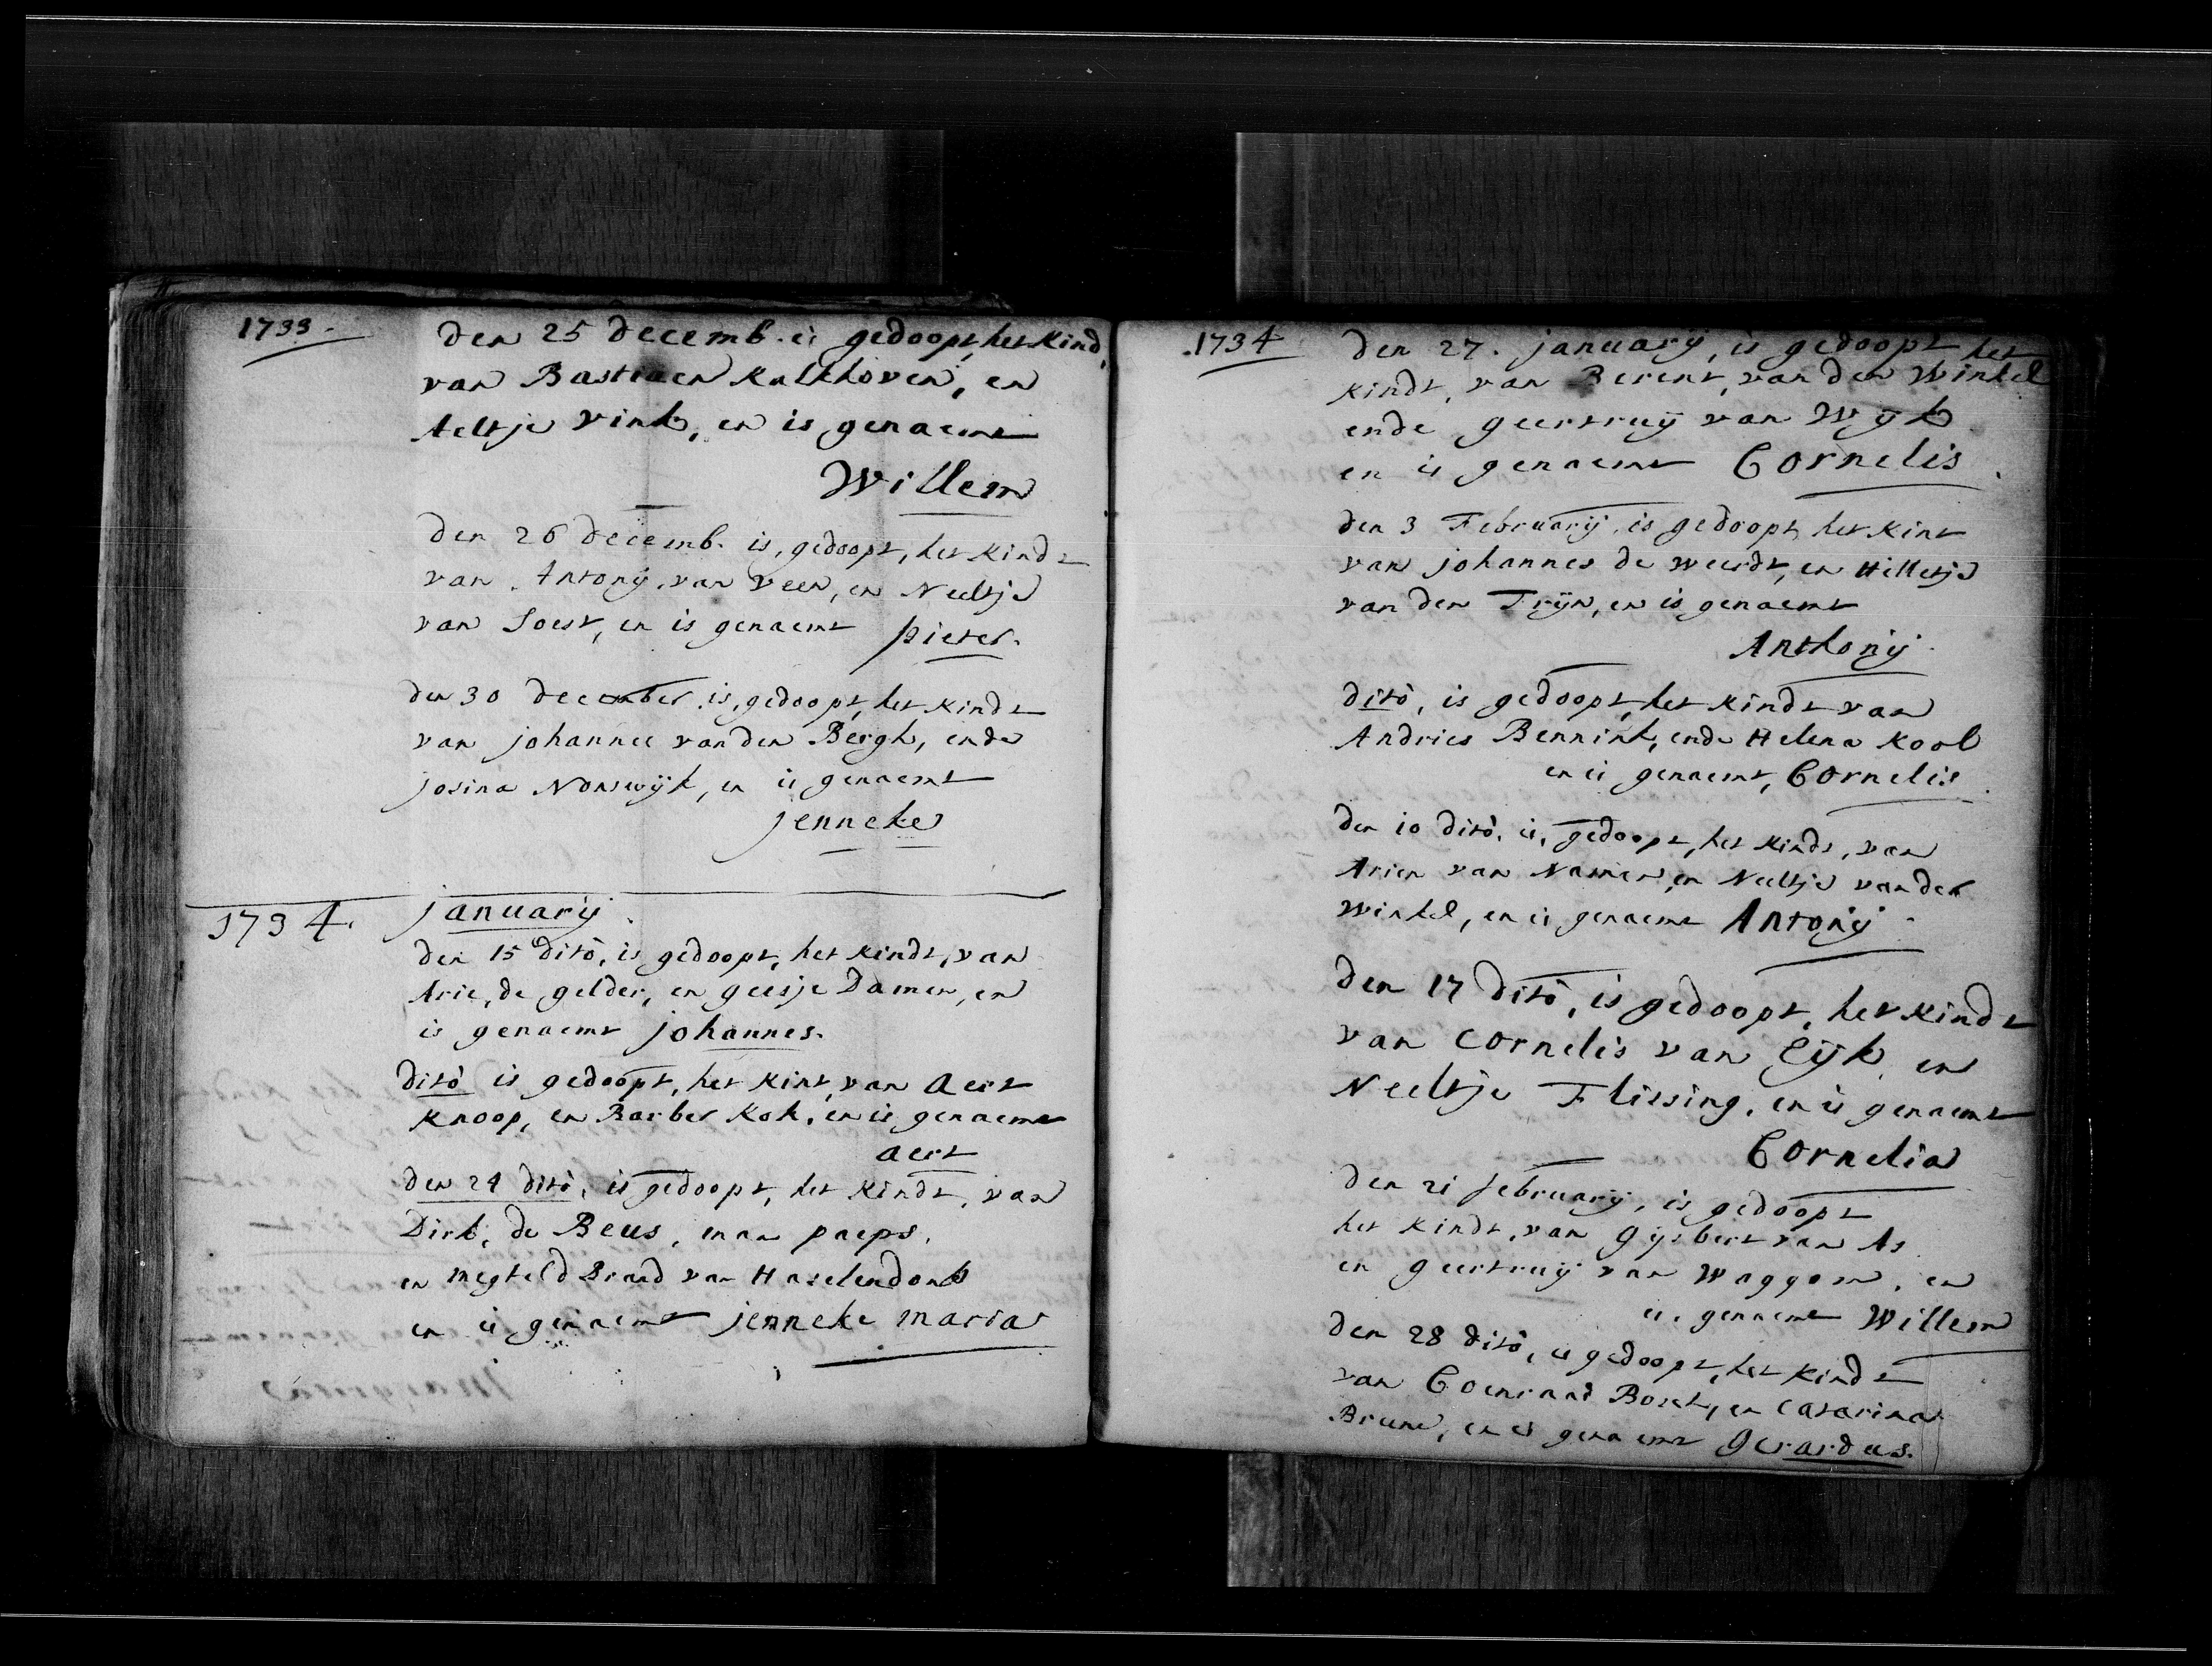 1733.
Den 25 decemb. is gedoopt, het kind,
van Bastiaen Kalkhoven, en
Aeltje Vink, en is genaemt
Willem
Den 26 decemb. is, gedoopt, het kindt
van Antonij van Veen, en Neeltje
van Soest, en is genaemt pieter.
den 30 december is, gedoopt, het kindt
van johannes van den Bergh, ende
josina Nonswijk, en is genaemt
jenneke
1734. januarij.
den 15 dito, is gedoopt, het kindt, van
Arie, de gelder, en geesje Damen, en
is genaemt johannes.
dito is gedoopt, het kint, van aert
Knoop, en Barber Kok, en is genaemt
aert
den 24 dito, is gedoopt, het kindt, van
Dirk, de Beus, man paeps,
en megteld Braad van Haselendonk
en is genaemt jenneke maria
.1734 den 27. januarij, is gedoopt het
kindt, van Berent, van den Winkel
ende geertruij van Wijk
en is genaemt Cornelis.
den 3 Februarij, is gedoopt, het kint
van johannes de weerdt, en Hilletje
van den Trijn, en is genaemt
Anthonij.
dito, is gedoopt, het kindt van
Andries Bennink, ende Helena Kool
en is genaemt, Cornelis.
den 10 dito, is, gedoopt, het kindt, van
Arien van Namen, en Neeltje van der
Winkel, en is genaemt Antonij.
Den 17 dito, is gedoopt, het kindt
van Cornelis van Eijk, en
Neeltje Flissing, en is genaemt
Cornelia
den 21 februarij, is gedoopt
het kindt, van gijsbert van As
en geertruij van Waggom, en
is, genaemt Willem
den 28 dito, is gedoopt, het kindt
van Coenraad Bosch, en Catarina
Brune, en is genaemt gerardus.